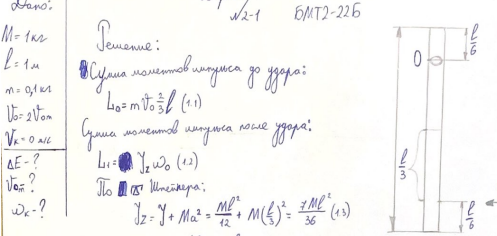 №2-1 БМТ2-22Б
Дано:
M = 1 кг
l = 1 м
m = 0,1 кг
V₀ = 2V₀m
Vₖ = 0 м/с
ΔE - ?
V₀m ?
ωₖ - ?
Решение:
Сумма моментов импульса до удара:
L₀ = m V₀ 2/3 l (1.1)
Сумма моментов импульса после удара:
L₁ = J_z ω₀ (1.2)
По Штейнера:
J_z = J + Ma² = Ml²/12 + M(l/3)² = 7Ml²/36 (1.3)
l/6
O
l/3
l/6